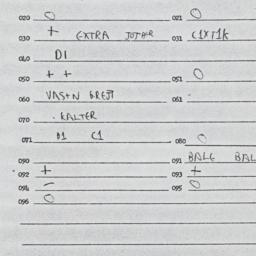 020 O 021 O
030 + EXTRA JOTHER 031 C1XT1K
040 D1
050 + + 051 O
060 VASTN BREJT 061
070 . KALTER
071 D1 C1 080 O
090 091 BALE BAL
092 + 093 +
094 – 095 O
096 O